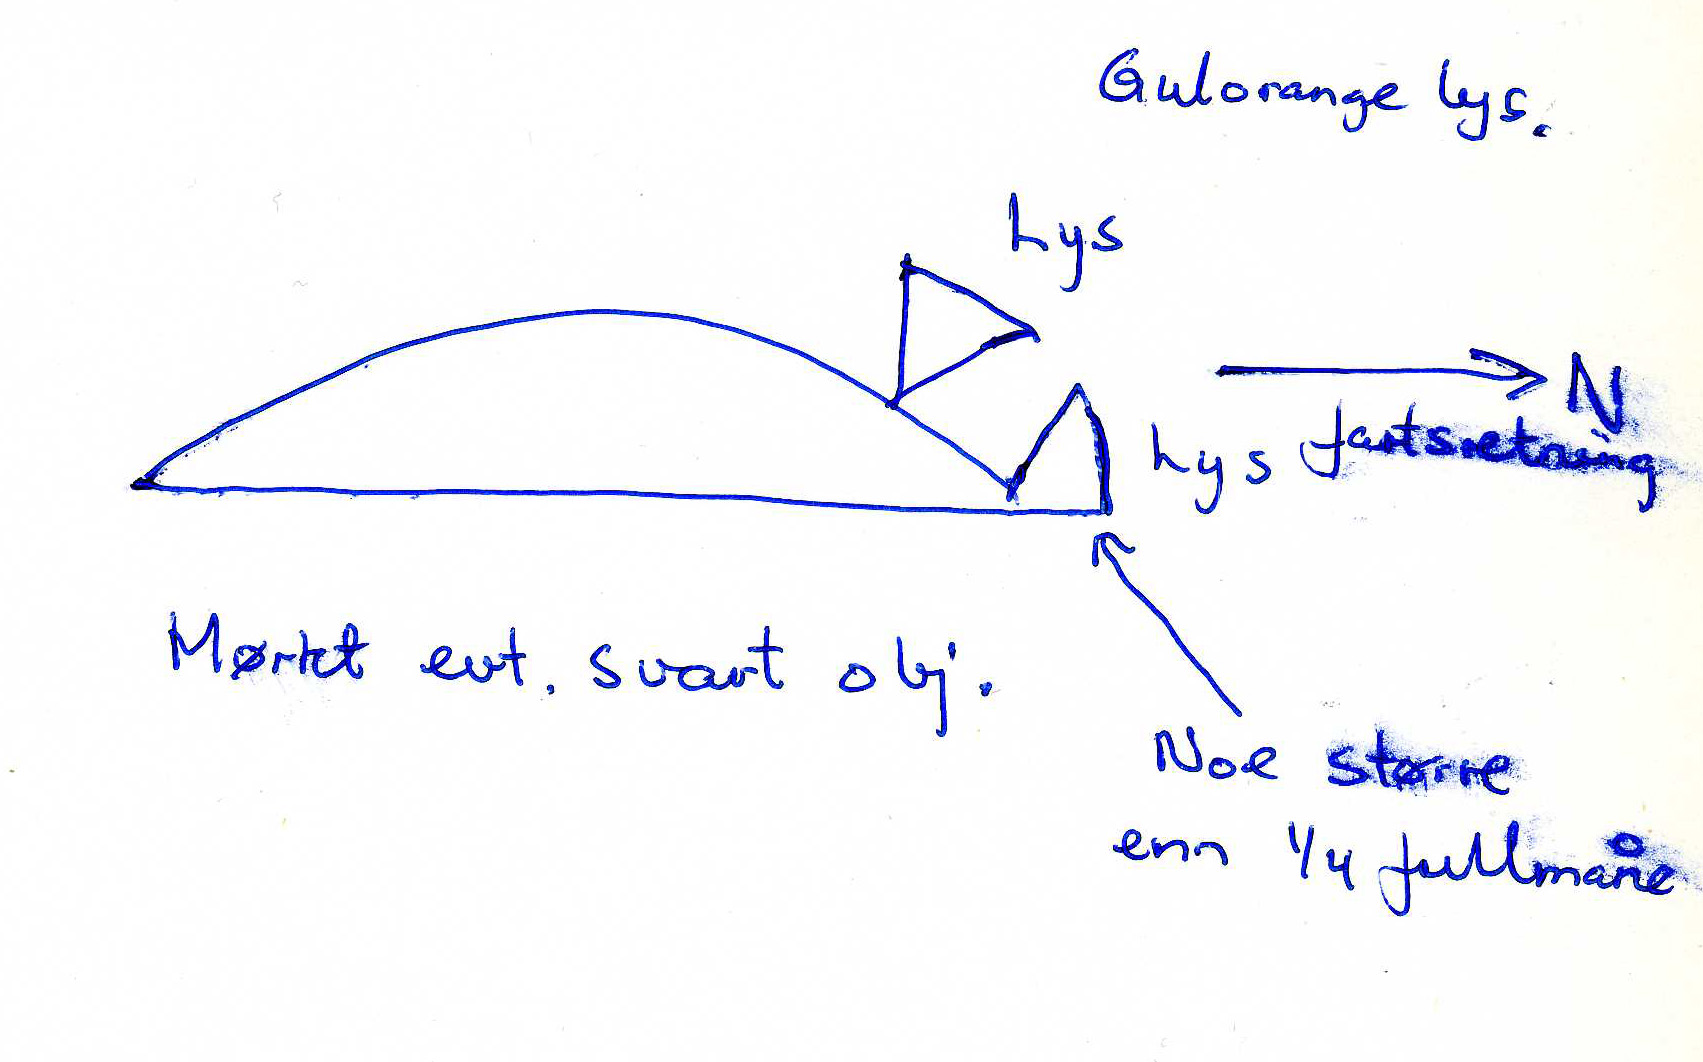 Gulorange lys.
Lys
N
Lys fartsretning
Mørkt evt. svart obj.
Noe større
enn 1/4 fullmåne